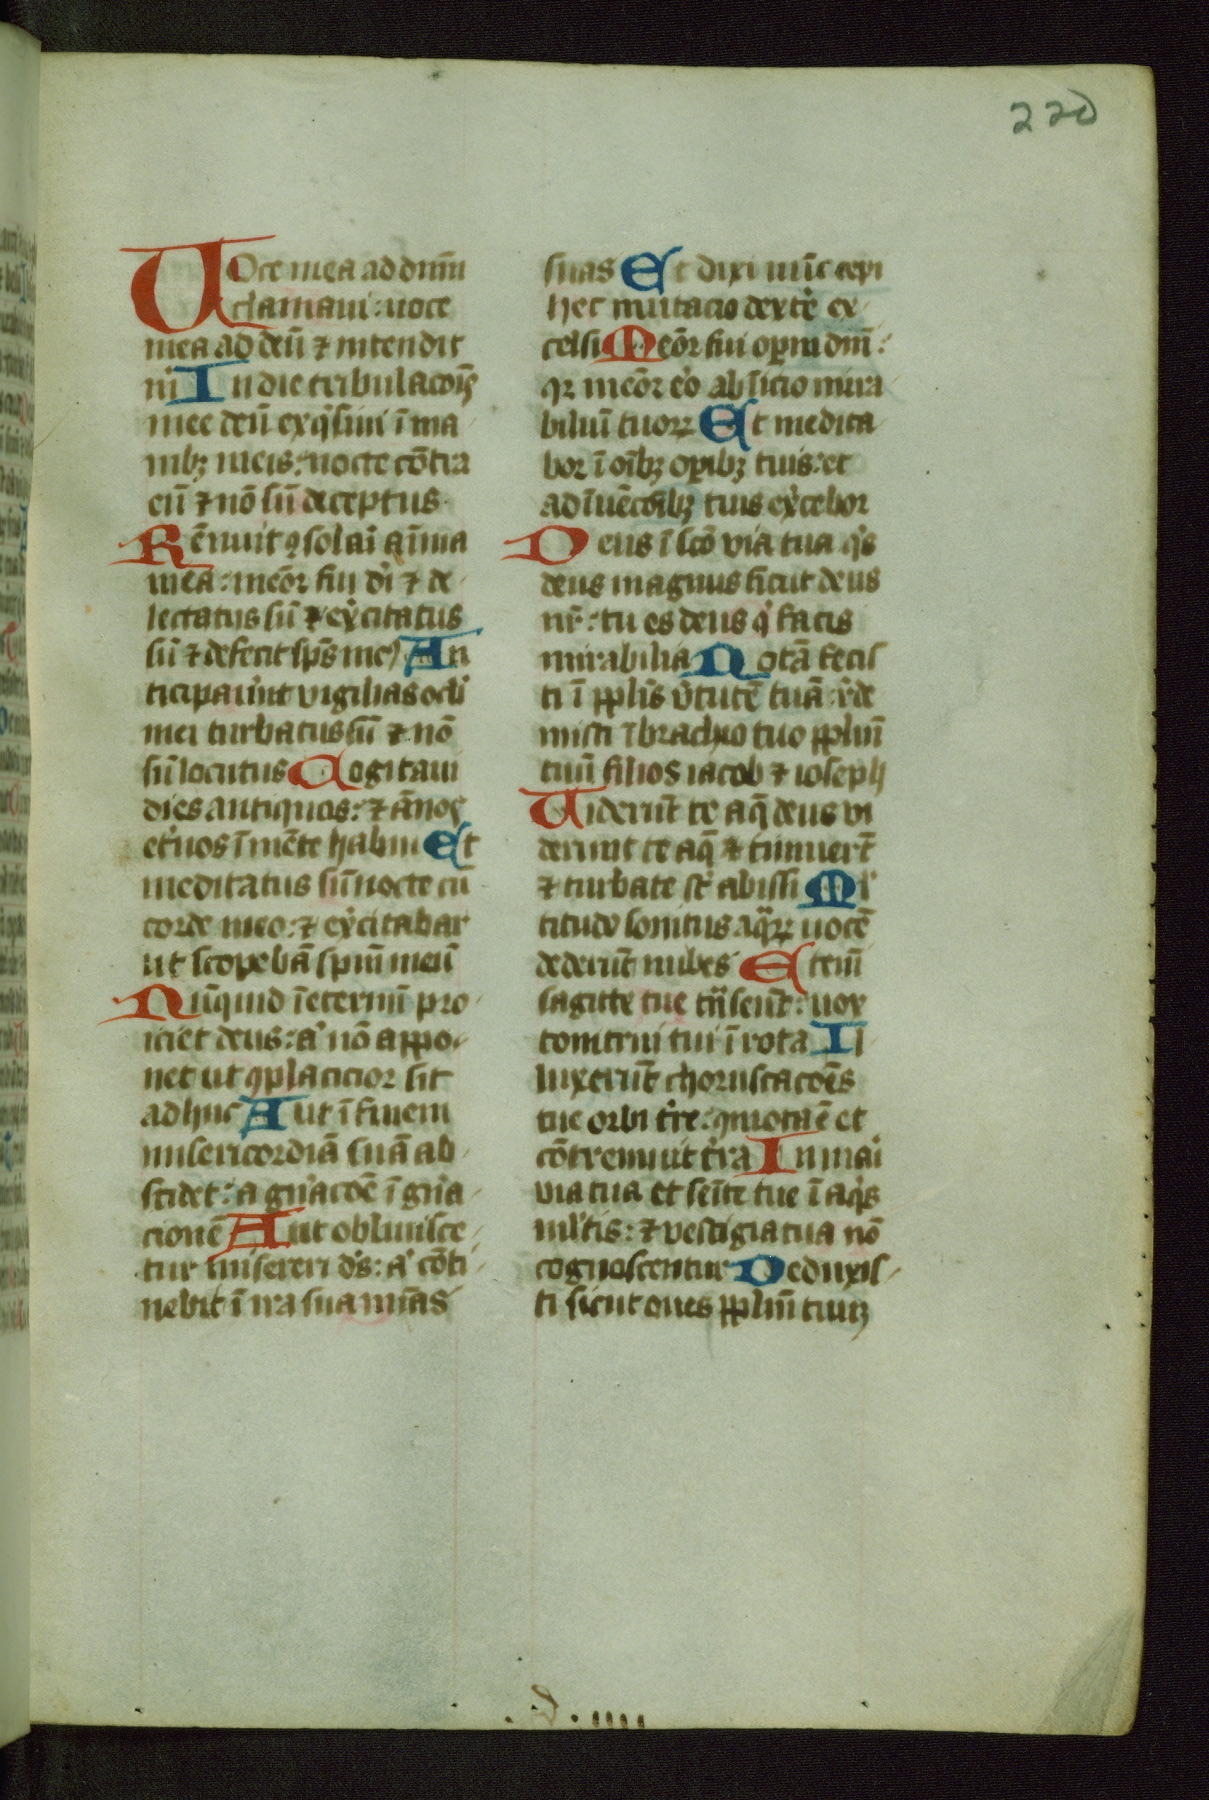 220
VOce mea ad dnm̄
clamaui: uoce
mea ad deū ⁊ intendit
m̉ In die tribulacōis
mee deū exq̉siui ī ma
nibꝫ meis: nocte cōtra
eū ⁊ nō sū deceptus
Rēnuit ꝯsolaỉ aīma
mea: meōr fui dỉ ⁊ de
lectatus sū ⁊ exc̉itatus
sū ⁊ defecit sp̄s meꝰ An
ticipauīnt vigilias ocl̉i
mei turbatus sū ⁊ nō
sū locutus Cogitaui
dies antiquos: ⁊ ānos
et̉nos ī mēte habui Et
meditatus sū nocte cū
corde meo: ⁊ exc̉itabar
ut scopebā spm̄ meū
Nūquid ī eternū pro
iciet deus: a̓ nō appo
net ut ꝯplacicior sit
adhuc Aut ī finem
misericordiā suā ab
scidet: a gn̉acōe ī gn̉a
cionē Aut obliuisce
tur misereri ds̄: a̓ cōti
nebit ī ira sua mīas
suas Et dixi nūc cepi
hec mutacio dext̉e ex
celsi Meōr fui oꝑum dnī:
qꝛ meōr ēo ab īicio mira
biliū tuoꝝ Et medita
bor ī oībꝫ oꝑibꝫ tuis: et
ad īuēcōibꝫ tuis exc̉ebor
Deus ī scō via tua q̉s
deus magnus sicut deus
nr̄: tu es deus q̉ facis
mirabilia Notā fecis
ti ī ppl̉is v̉tutē tuā r̉de
misti ī brachio tuo pplūm
tuū filios iacob ⁊ ioseph
Viderūt te aq̄ deus vi
derunt te aq̄ ⁊ timuer̄t
⁊ turbate st̄ abissi Ml̉
titudo sonitus aq̄ꝝ uocē
dederūt nubes Etenī
sagitte tue tn̄seūt: uox
tonitrui tui ī rota Il
luxerūt choruscacōes
tue orbi tr̉e: ꝯmota ē et
cōtremuit tr̉a In maỉ
via tua et semīte tue ī aq̉s
ml̉tis: ⁊ vestigia tua nō
cognoscentur Deduxis
ti sicut oues pplūm tuuꝫ